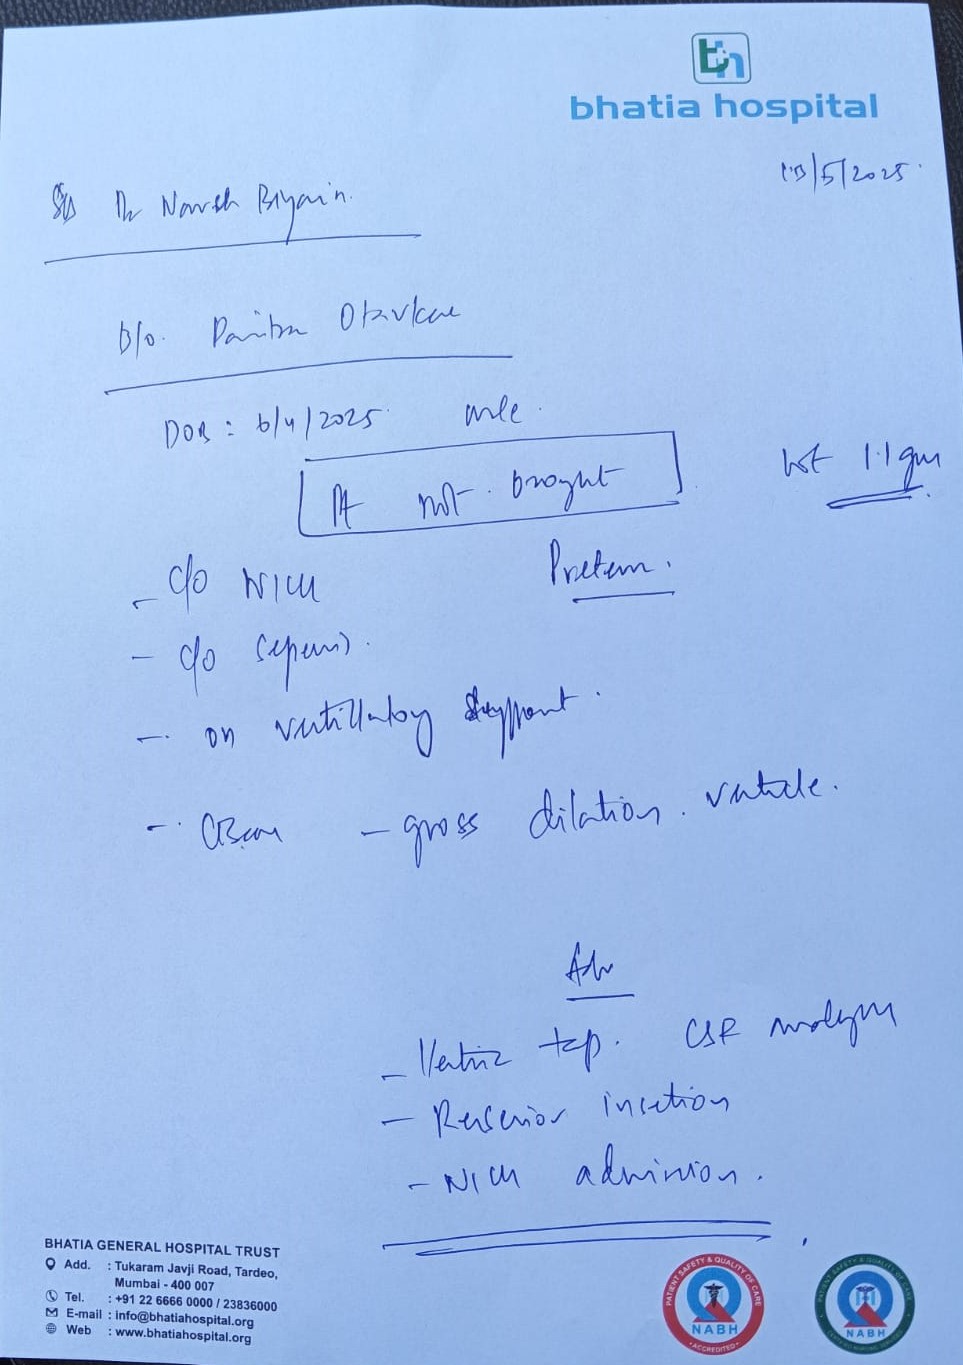 bhatia hospital
13/5/2025
S/B Dr Naresh Biyani
B/o. Otavkar
DOB : 6/4/2025 male
wt 1.1 gm
Pt not brought
Preterm.
- c/o NICU
- c/o sepsis.
- on ventillatory support.
- - gross dilation ventricle.
Adv
- Ventric tap. CSF analysis
- Reservior insertion
- NICU admission.
BHATIA GENERAL HOSPITAL TRUST
Add. : Tukaram Javji Road, Tardeo,
Mumbai - 400 007
Tel. : +91 22 6666 0000 / 23836000
E-mail : info@bhatiahospital.org
Web : www.bhatiahospital.org
PATIENT SAFETY & QUALITY OF CARE
NABH
ACCREDITED
NABH